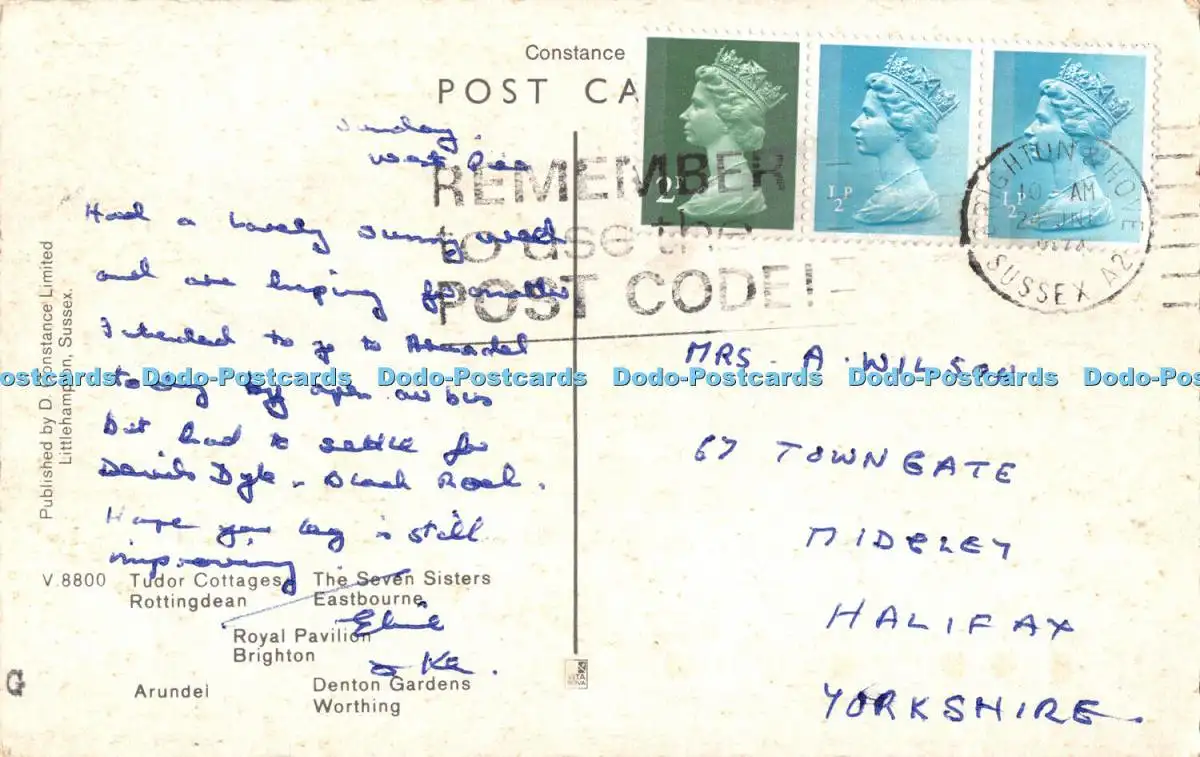 Constance
POST CA
Sunday.
West Pier
Had a lovely sunny week
and are hoping for another
Intended to go to Arundel
today by open air bus
But had to settle for
Devils Dyke - Black Rock.
Hope your leg is still
improving
Elsie
& Ke.
REMEMBER
to use the
POST CODE!
2P
½P
½P
BRIGHTON & HOVE
10 AM
SUSSEX A2
MRS. A. WILSON
67 TOWNGATE
MIDGLEY
HALIFAX
YORKSHIRE.
Published by D. Constance Limited
Littlehampton, Sussex.
V.8800 Tudor Cottages The Seven Sisters
Rottingdean Eastbourne
Royal Pavilion
Brighton
Arundel Denton Gardens
Worthing
Dodo-Postcards Dodo-Postcards Dodo-Postcards Dodo-Postcards Dodo-Postcards Dodo-Postcards